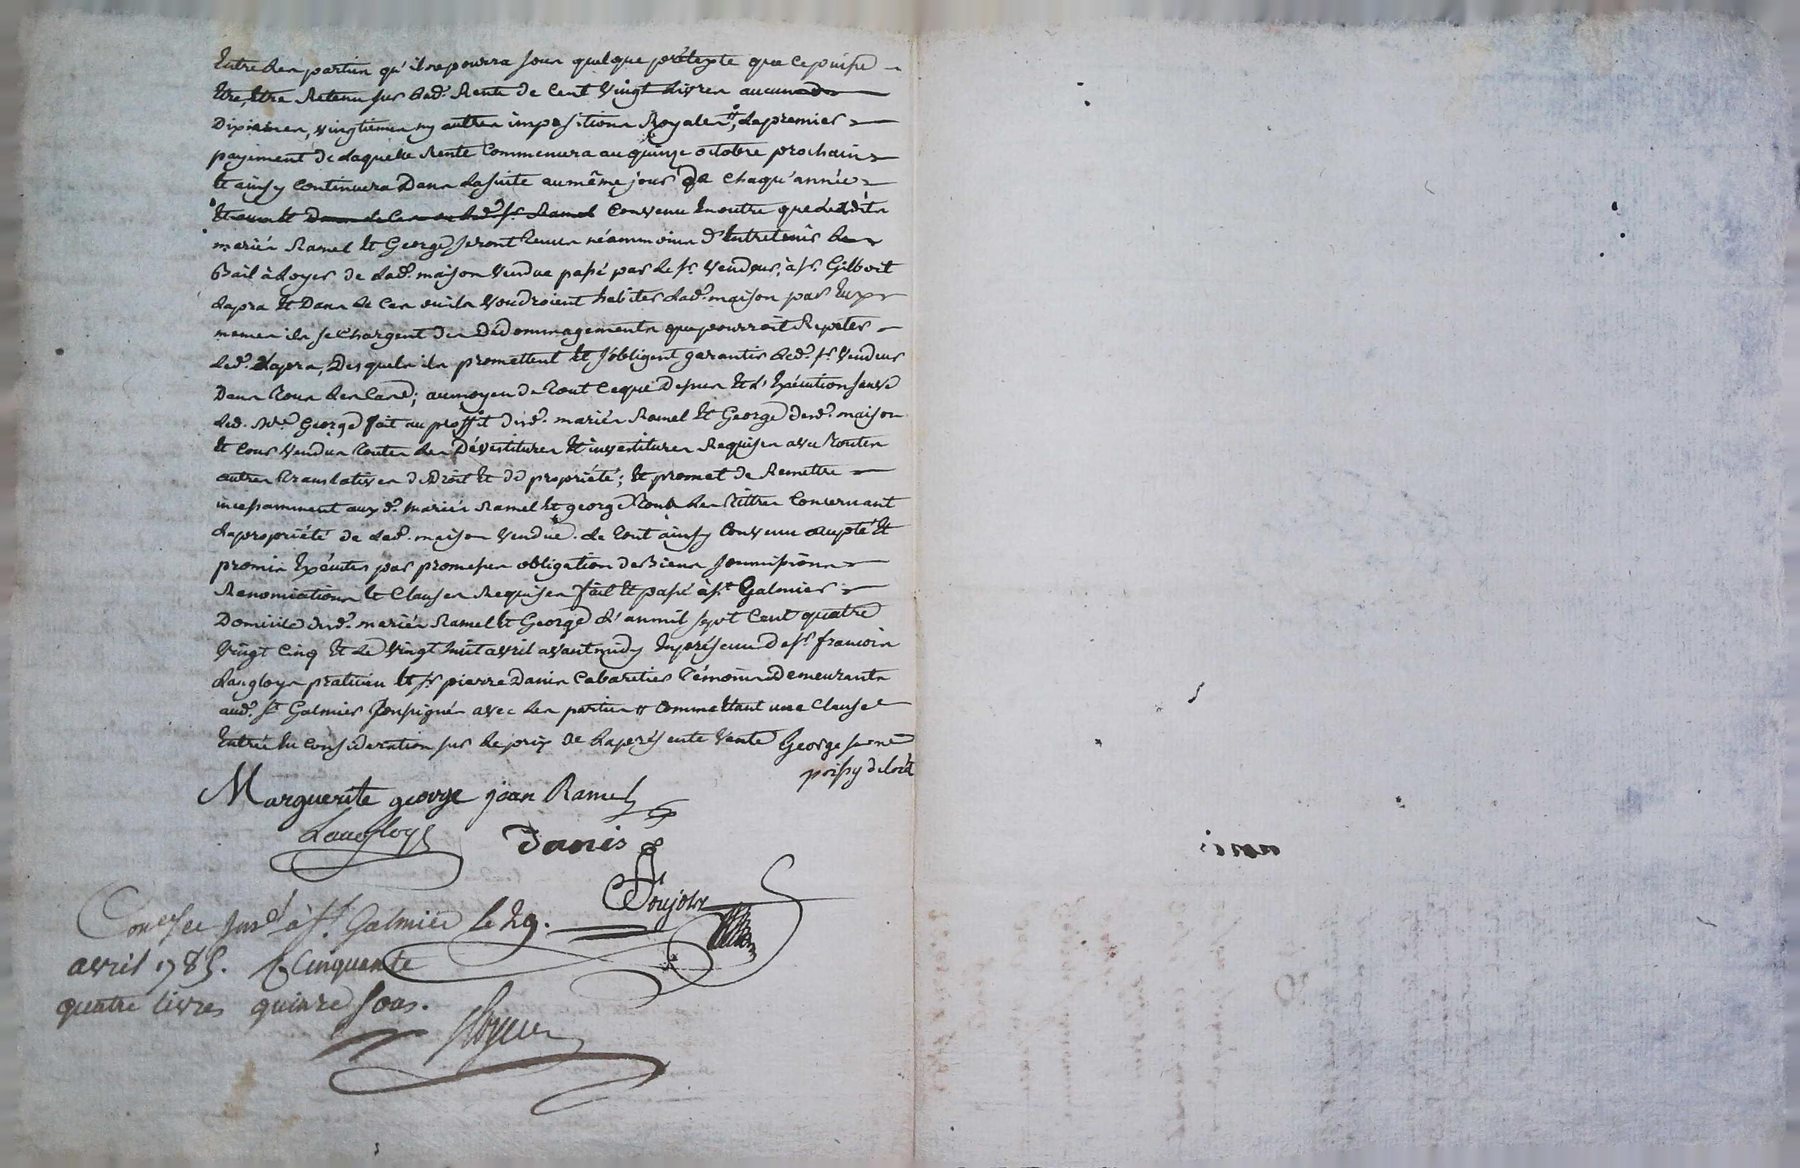 Entre les parties qu'il ne pourra sous quelque prétexte que ce puisse
Etre, Etre Retenu sur lad.e Rente de Cent vingt Livres aucuns
Dixiemes, vingtiemes ny autres impositions Royales, le premier
payement de laquelle Rente Commencera au quinze octobre prochain
Et ainsy Continuera Dans la suite au même jour de chaqu'année
Convenu En outre que lesdits
mariés Ramel Et George seront tenus néammoins d'Entretenir le
Bail à Loyer de lad.e maison vendue passé par le sr. vendeur, à sr. Gilbert
Lapra Et Dans le Cas ou ils voudroient habiter lad.e maison par Eux
memes ils se Chargent des Dédommagements que pourroit Repeter
led. Lapra, Desquels ils promettent Et s'obligent garantir led. sr. vendeur
Dans tous les Cas; au moyen de tout ce que Dessus Et d'Exécution
led. George fait au proffit desd. mariés Ramel Et George de lad.e maison
Et Cour vendus toutes les Dévestitures Et investitures Requises avec toutes
autres translatives de Droit Et de propriété; Et promet de Remettre
incessamment auxd. mariés Ramel Et george tous les tittres Concernant
la propriété de lad.e maison vendue. Le tout ainsy Convenu accepté Et
promis Exécuter par promesses obligation de Biens soumissions
Renonciations Et Clauses Requises fait Et passé à st. Galmier
Domicile desd. mariés Ramel Et George L'an mil sept Cent quatre
vingt Cinq Et le vingt huit avril avant midy En présence de sr. francois
Langloys praticien Et sr. pierre Danis Cabaretier témoins Demeurants
aud. st. Galmier soussignés avec les parties Comme Etant une Clause
Entrée En Consideration sur le prix de la présente vente George
Marguerite george jean Ramel
Langloys
Danis
Coner. Sce. à St. Galmier le 29.
avril 1785. R Cinquante
quatre livres quinze sous.